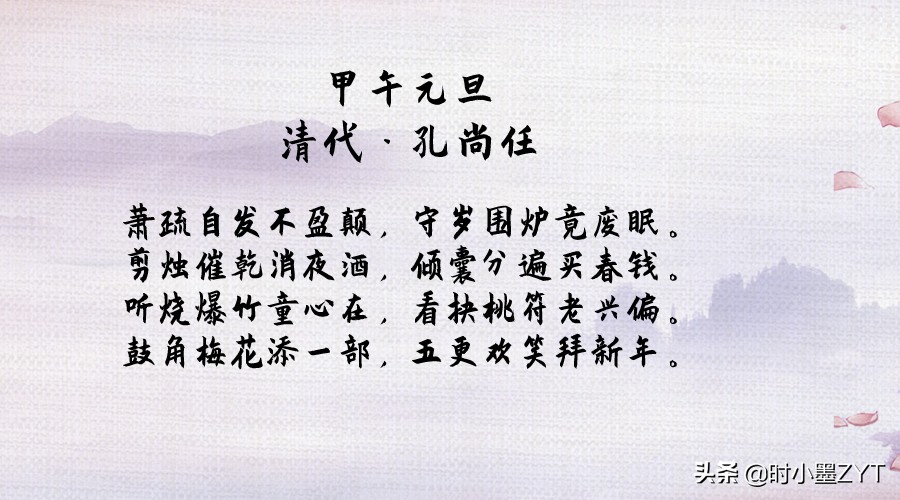 甲午元旦
清代·孔尚任
萧疏自发不盈颠，守岁围炉竟废眠。
剪烛催乾消夜酒，倾囊分遍买春钱。
听烧爆竹童心在，看抉桃符老兴偏。
鼓角梅花添一部，五更欢笑拜新年。
头条 @时小墨ZYT